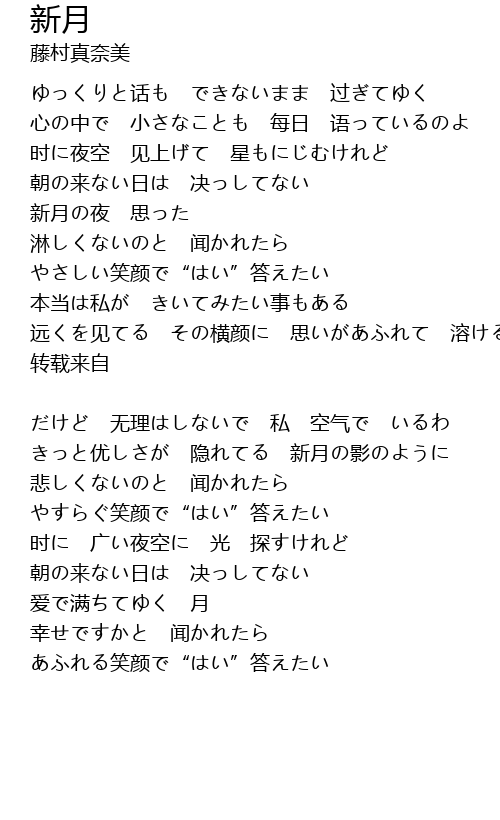 新月
藤村真奈美
ゆっくりと话も　できないまま　过ぎてゆく
心の中で　小さなことも　毎日　语っているのよ
时に夜空　见上げて　星もにじむけれど
朝の来ない日は　决っしてない
新月の夜　思った
淋しくないのと　闻かれたら
やさしい笑颜で“はい”答えたい
本当は私が　きいてみたい事もある
远くを见てる　その横颜に　思いがあふれて　溶ける
转载来自

だけど　无理はしないで　私　空气で　いるわ
きっと优しさが　隐れてる　新月の影のように
悲しくないのと　闻かれたら
やすらぐ笑颜で“はい”答えたい
时に　广い夜空に　光　探すけれど
朝の来ない日は　决っしてない
爱で満ちてゆく　月
幸せですかと　闻かれたら
あふれる笑颜で“はい”答えたい